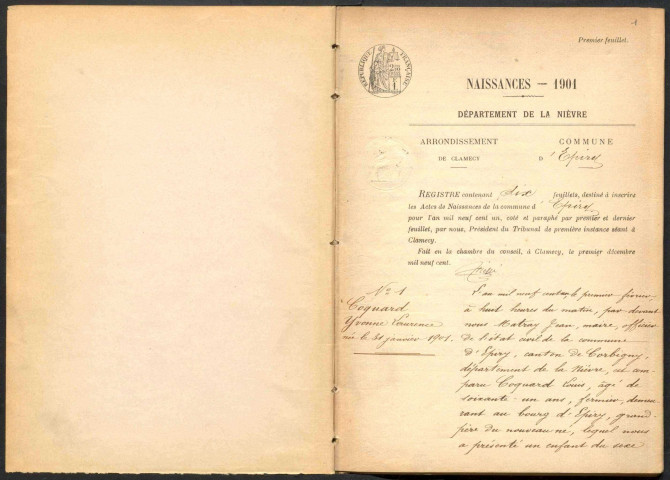 1
Premier feuillet.
RÉPUBLIQUE FRANÇAISE
NAISSANCES — 1901
DÉPARTEMENT DE LA NIÈVRE
ARRONDISSEMENT
DE CLAMECY
COMMUNE
D'Epiry
REGISTRE contenant dix feuillets, destiné à inscrire
les Actes de Naissances de la commune d'Epiry
pour l'an mil neuf cent un, coté et paraphé par premier et dernier
feuillet, par nous, Président du Tribunal de première instance séant à
Clamecy.
Fait en la chambre du conseil, à Clamecy, le premier décembre
mil neuf cent.
No 1
Coquard
Yvonne Laurence
née le 31 janvier 1901.
L'an mil neuf cent un le premier février
à huit heures du matin, par devant
nous Matray Jean, maire, officier
de l'état civil de la commune
d'Epiry, canton de Corbigny,
département de la Nièvre, est com-
paru Coquard Louis, âgé de
soixante-un ans, fermier, demeu
rant au bourg d'Epiry, grand-
père du nouveau né, lequel nous
a présenté un enfant du sexe